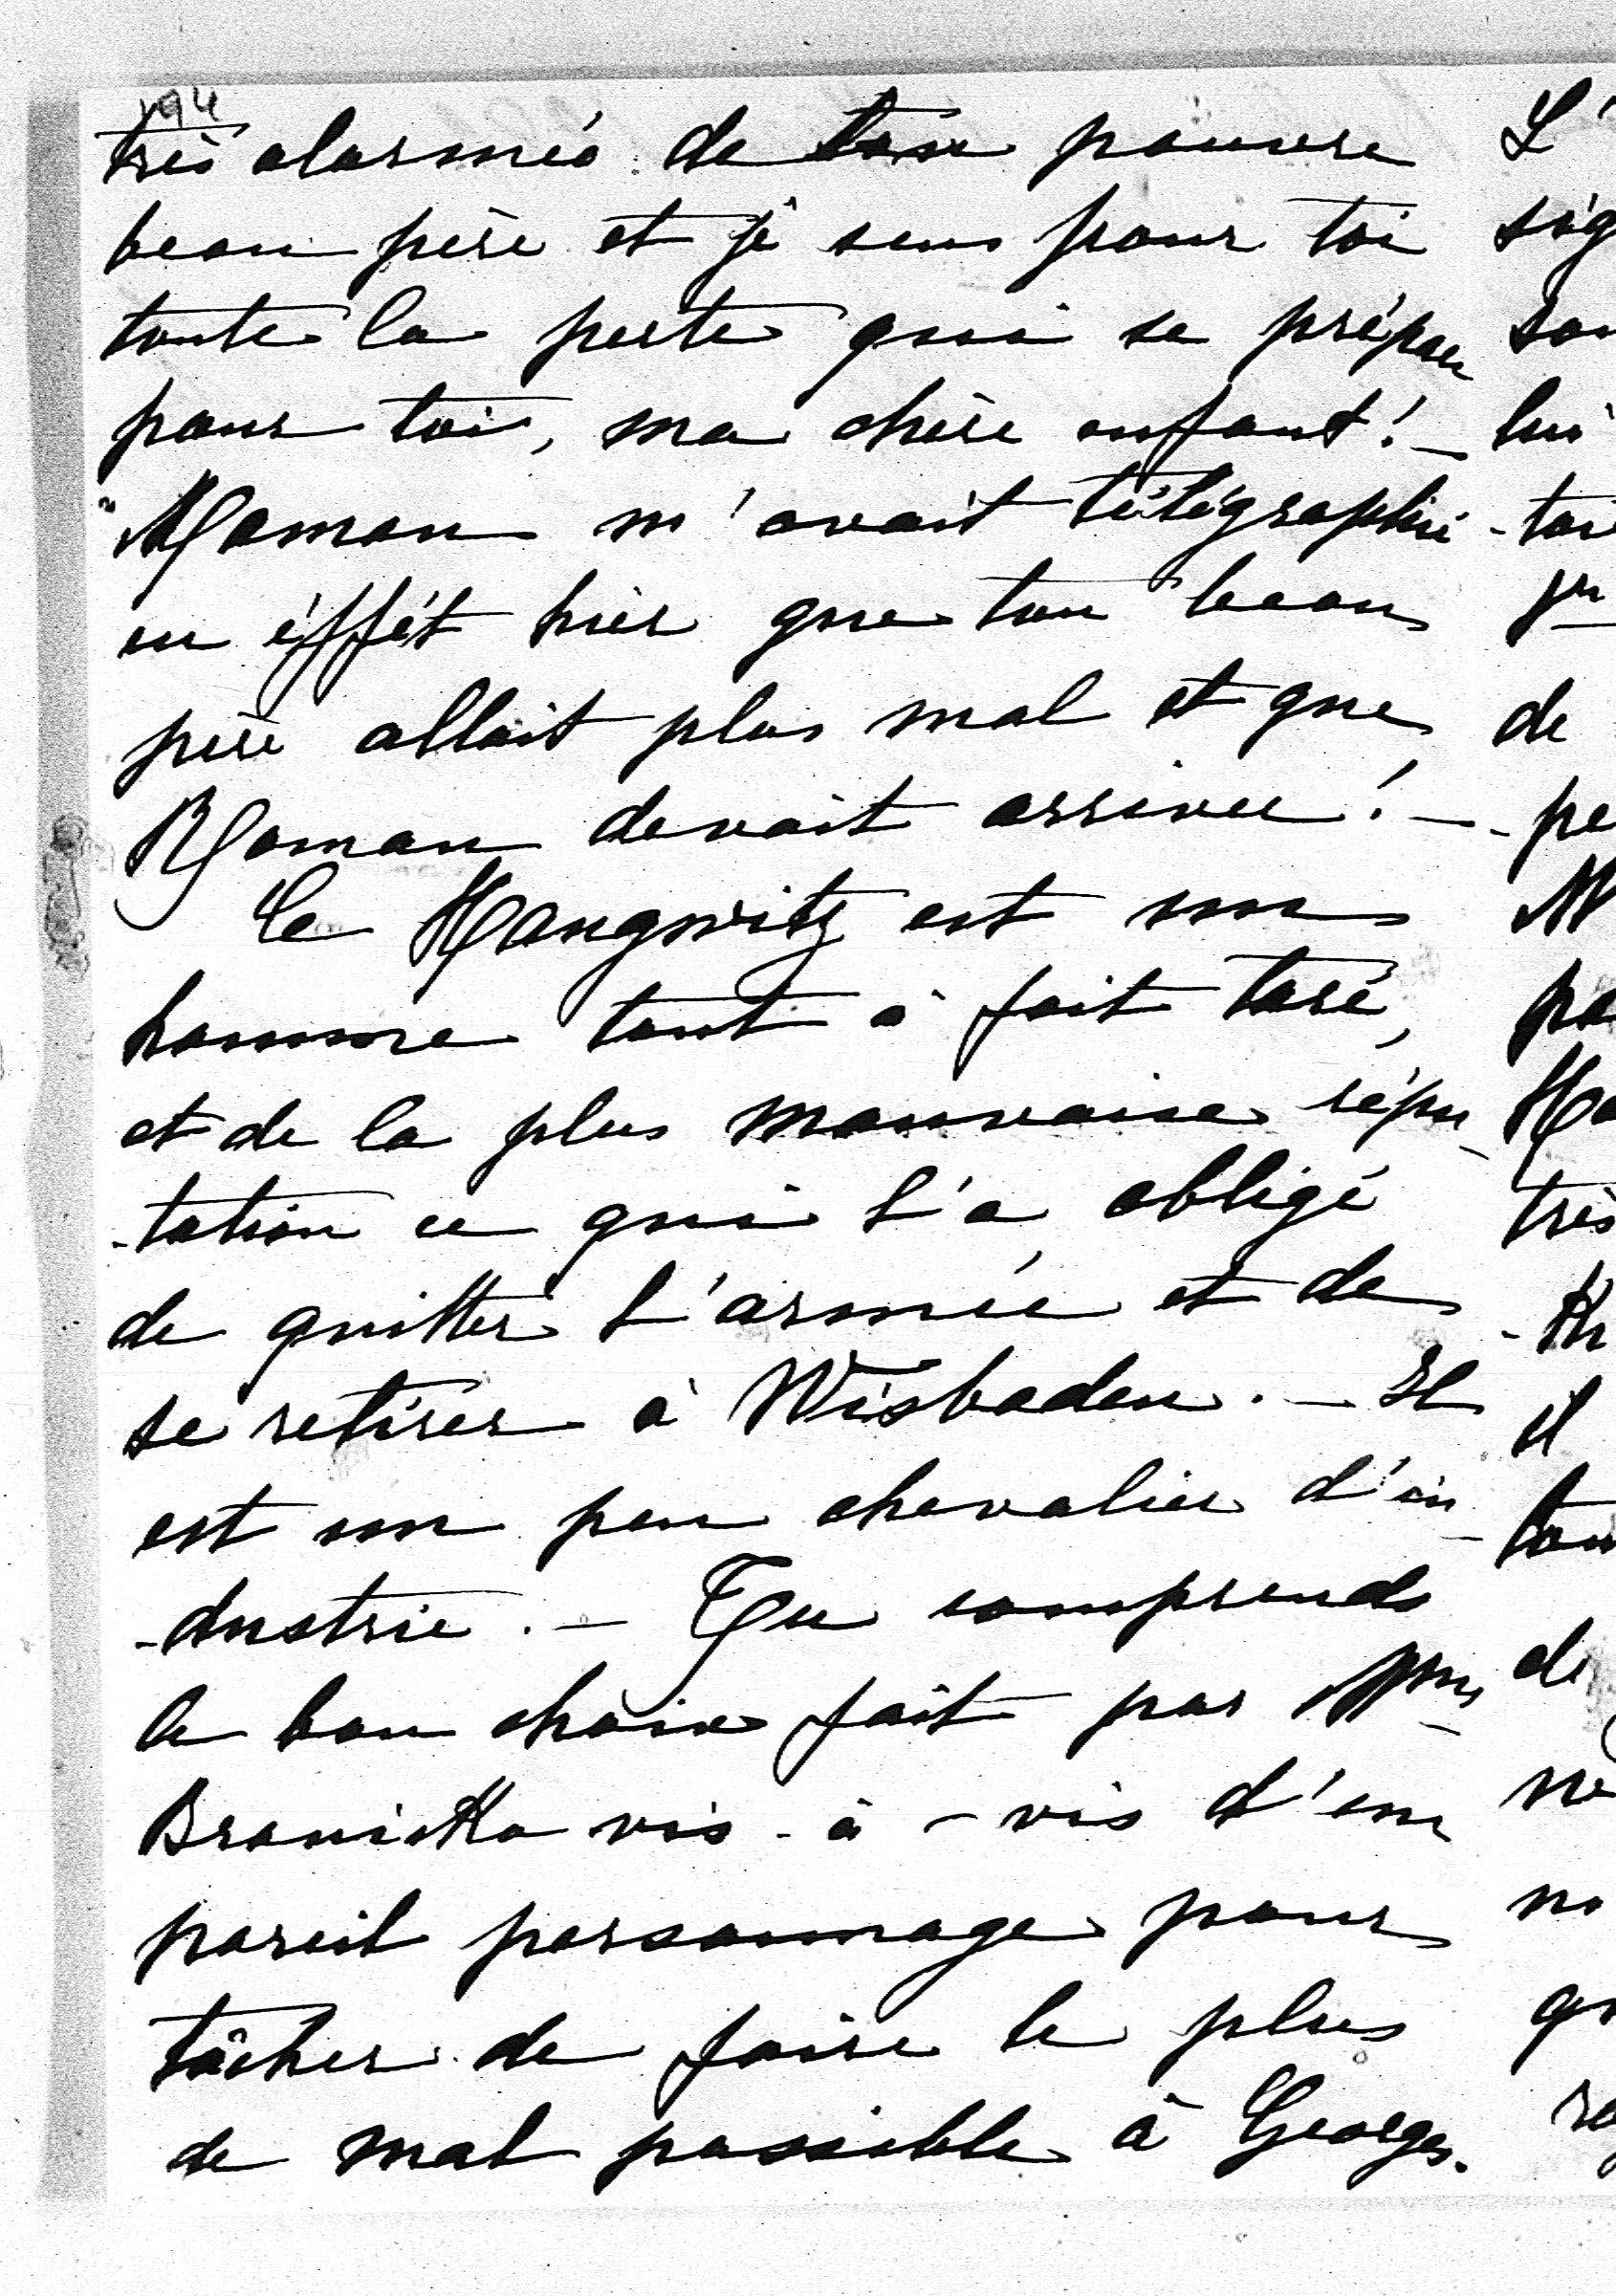 194
très alarmés de ton pauvre
beau père et je sens pour toi
toute la perte qui se prépare
pour toi, ma chère enfant! —
Maman m'avait télégraphié
en éffét hier que ton beau
père allait plus mal et que
Roman devait arriver! —
Ce Haugwitz est un
homme tout à fait taré,
et de la plus mauvaise répu-
-tation ce qui l'a obligé
de quitter l'armée et de
se retirer à Wisbaden. — Il
est un peu chevalier d'in-
-dustrie. — Tu comprends
le bon choix fait par Mme
Branicka vis-à-vis d'un
pareil personnage pour
tâcher de faire le plus
de mal possible à Georges.
L'
lui
de
très
il